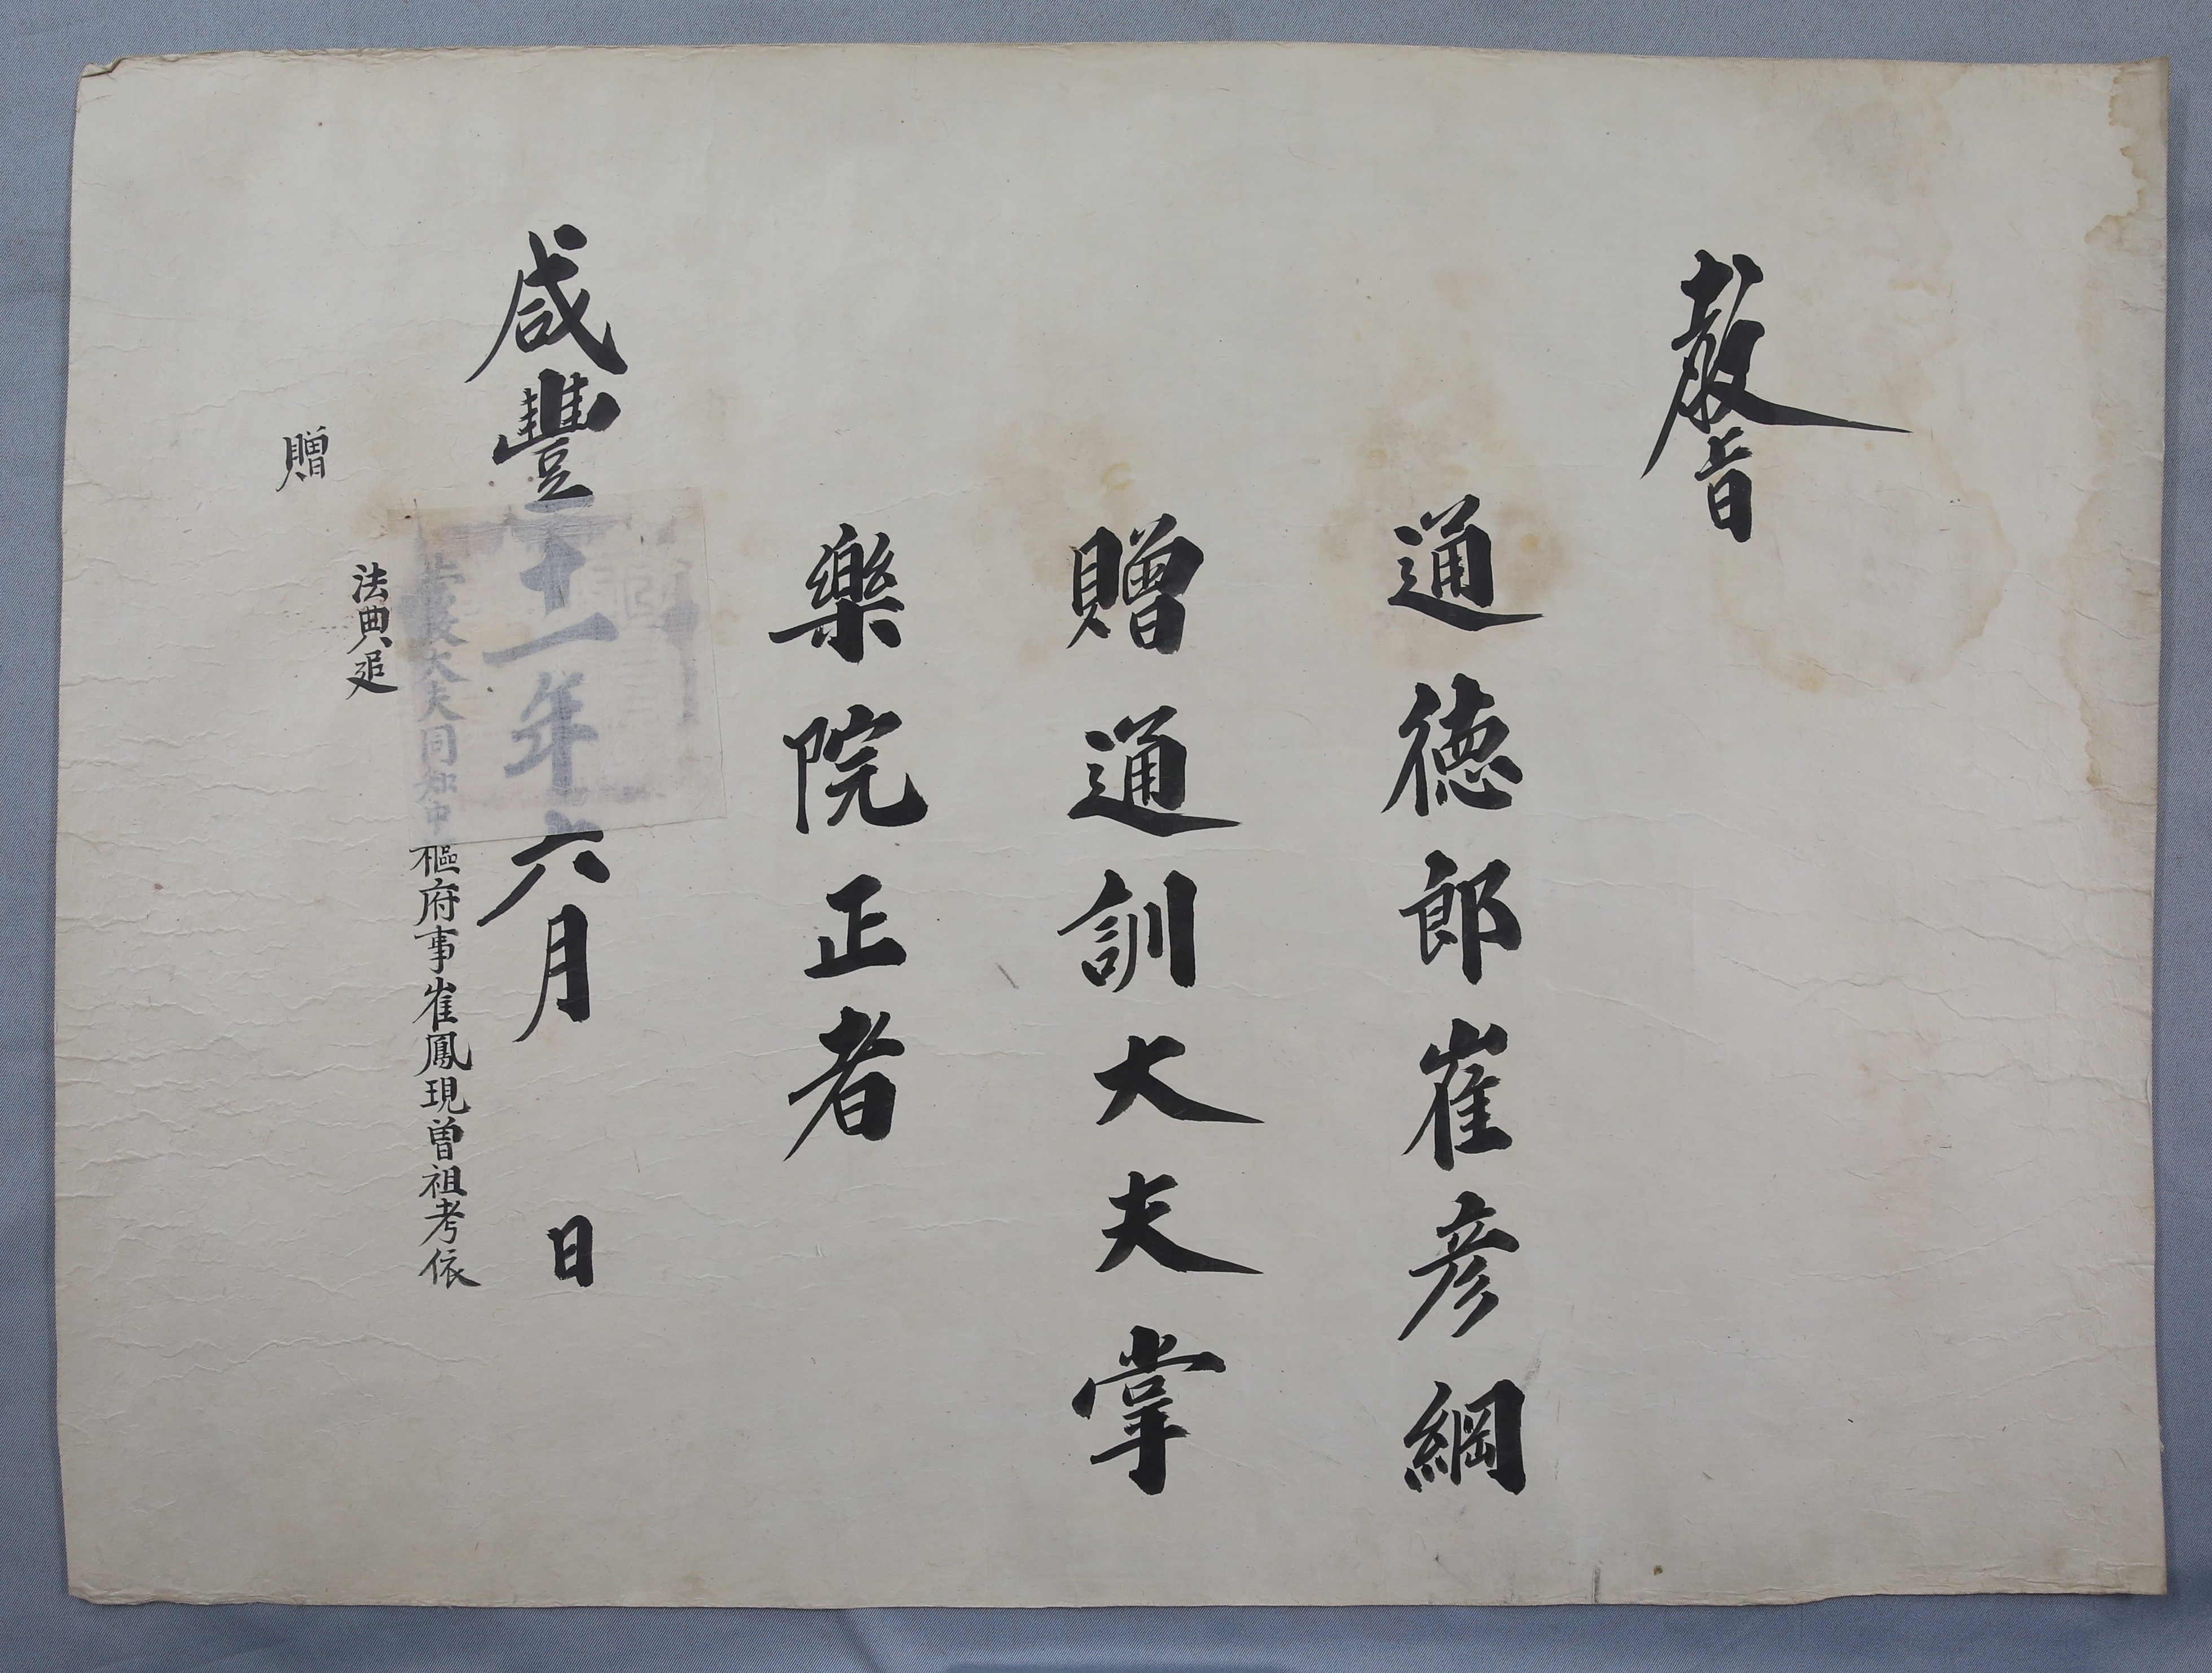 敎旨
通徳郎崔彦綱
贈通訓大夫掌
樂院正者
咸豐十一年六月 日
大夫同知中樞府事崔鳳現曽祖考依
法典追
贈